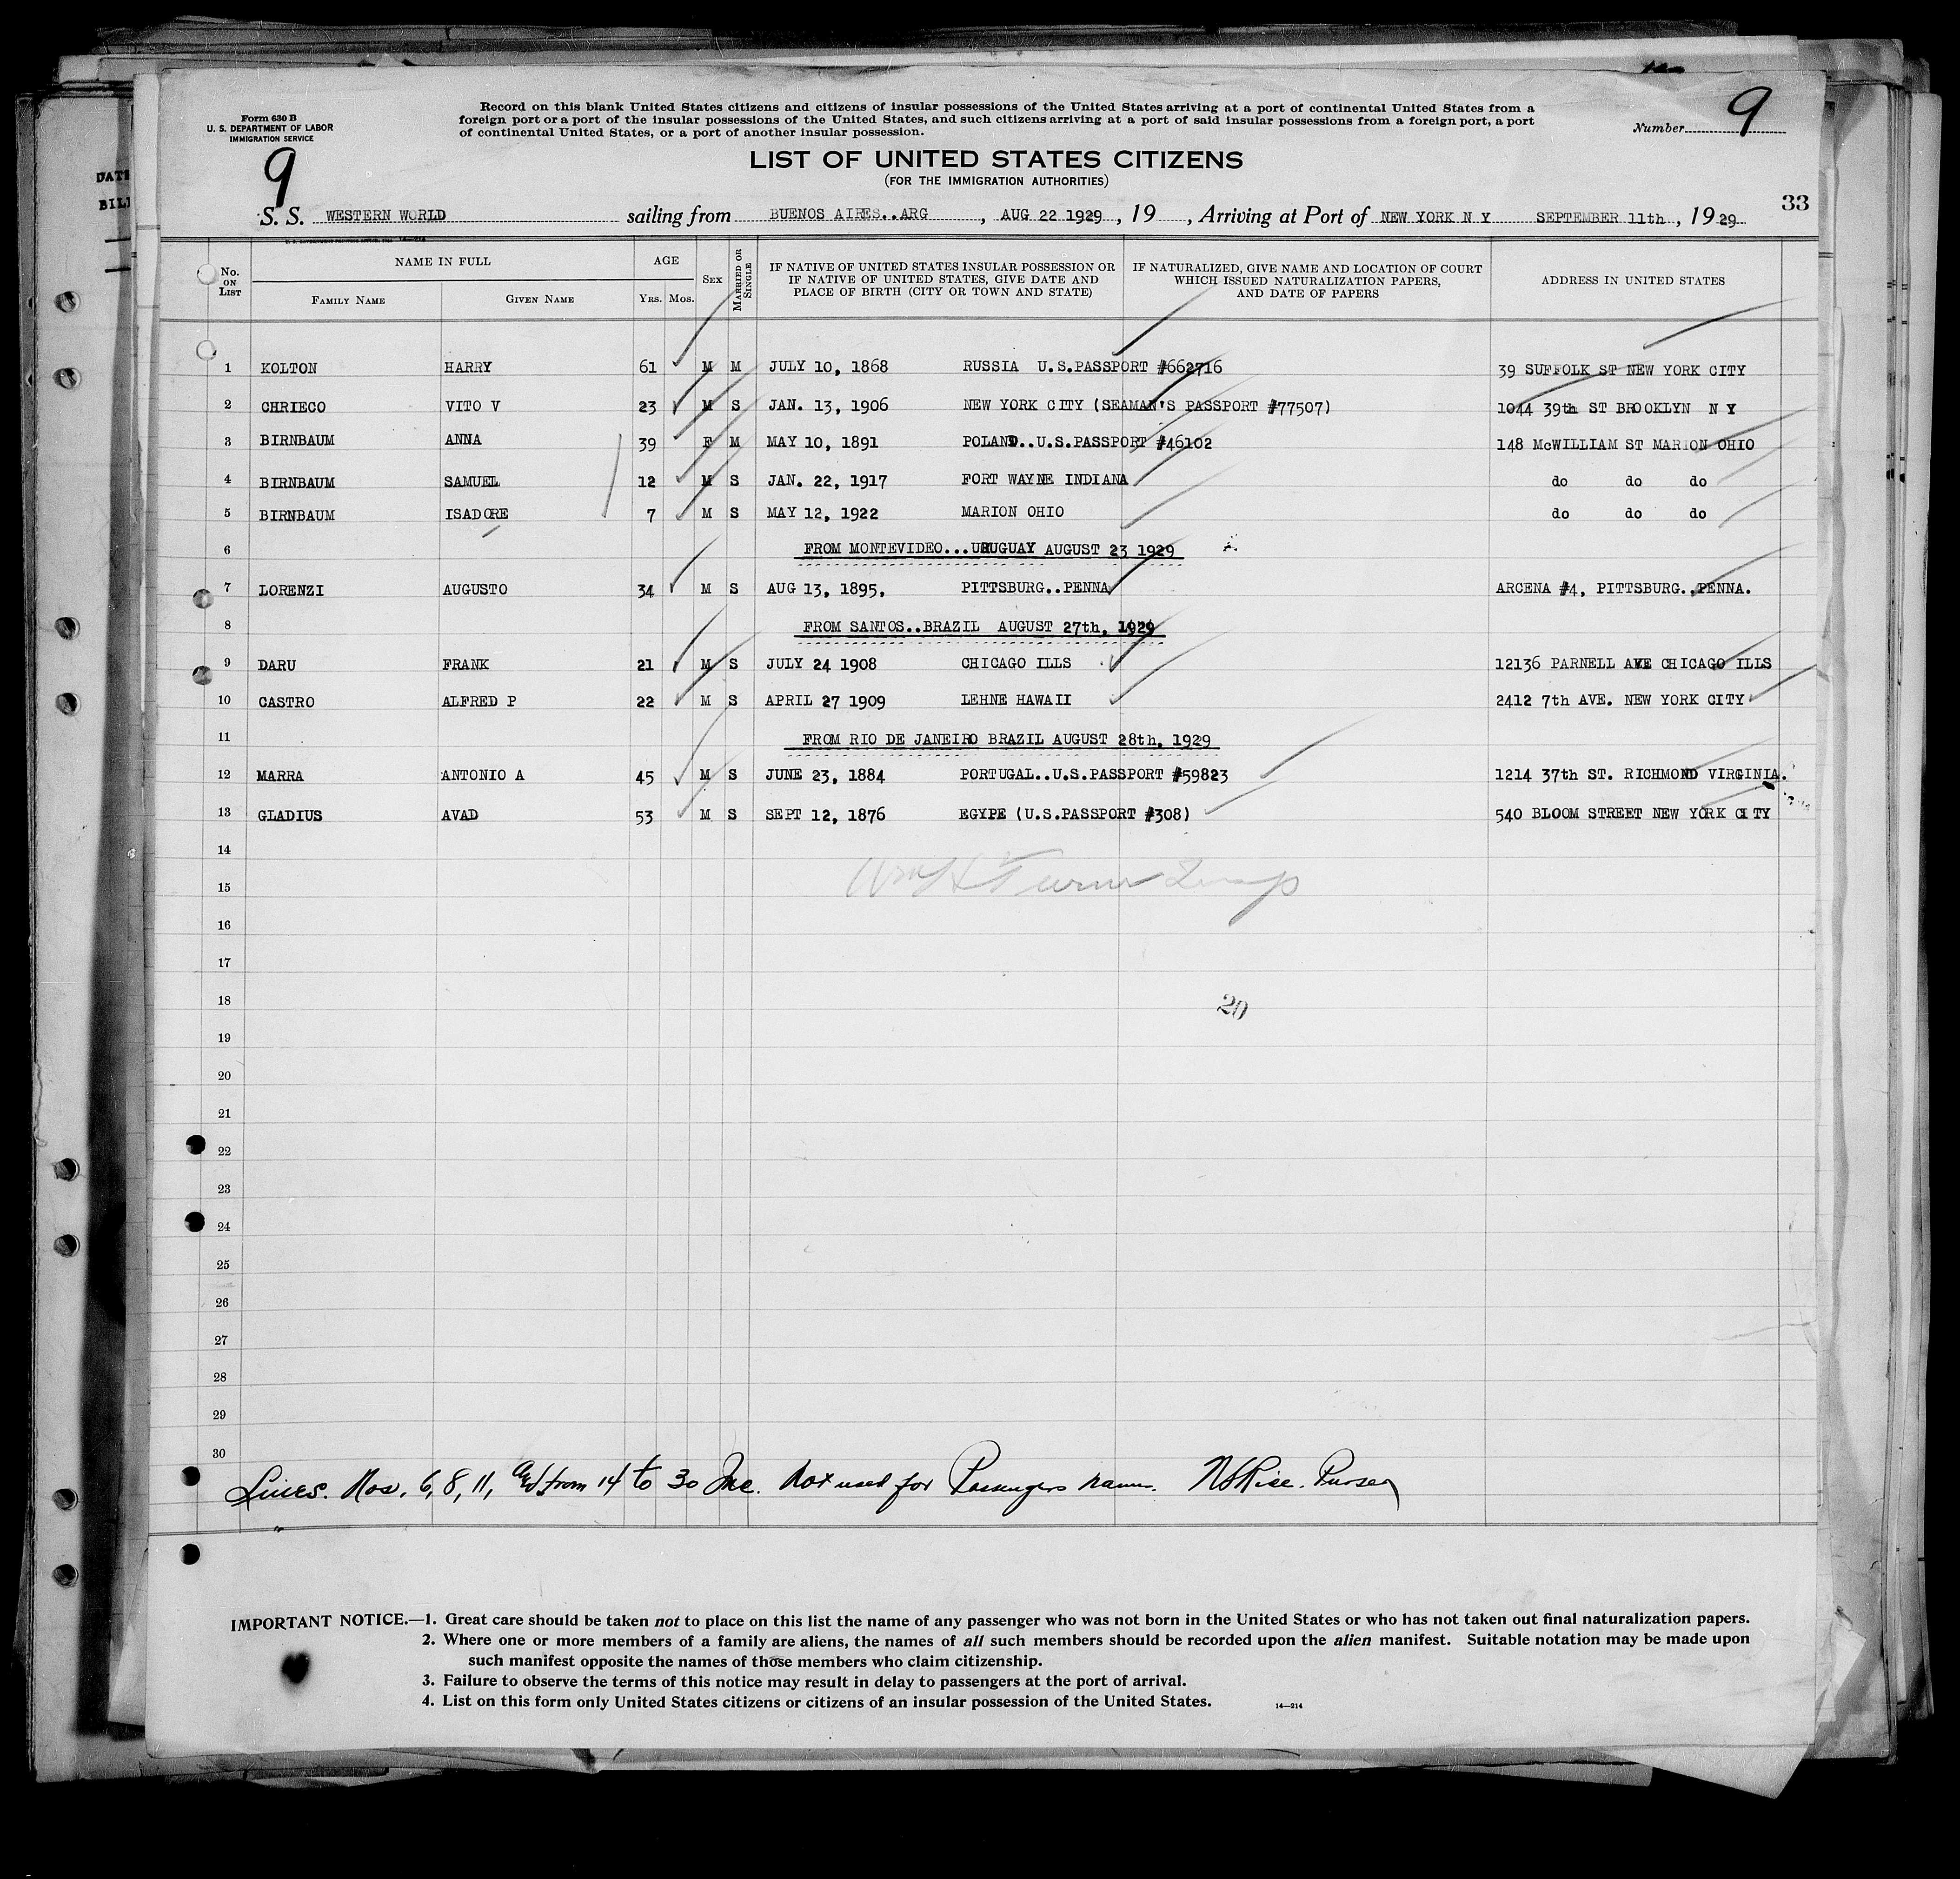 DATE
BILL
Form 630 B
U. S. DEPARTMENT OF LABOR
IMMIGRATION SERVICE
9
Record on this blank United States citizens and citizens of insular possessions of the United States arriving at a port of continental United States from a
foreign port or a port of the insular possessions of the United States, and such citizens arriving at a port of said insular possessions from a foreign port, a port
of continental United States, or a port of another insular possession.
Number 9
LIST OF UNITED STATES CITIZENS
(FOR THE IMMIGRATION AUTHORITIES)
33
S. S. WESTERN WORLD sailing from BUENOS AIRES..ARG , AUG 22 1929 , 19 , Arriving at Port of NEW YORK N Y SEPTEMBER 11th , 1929
No. ON LIST NAME IN FULL AGE SEX MARRIED OR SINGLE IF NATIVE OF UNITED STATES INSULAR POSSESSION OR IF NATIVE OF UNITED STATES, GIVE DATE AND PLACE OF BIRTH (CITY OR TOWN AND STATE) IF NATURALIZED, GIVE NAME AND LOCATION OF COURT WHICH ISSUED NATURALIZATION PAPERS, AND DATE OF PAPERS ADDRESS IN UNITED STATES
FAMILY NAME GIVEN NAME YRS. MOS.
1 KOLTON HARRY 61 M M JULY 10, 1868 RUSSIA U.S.PASSPORT #662716 39 SUFFOLK ST NEW YORK CITY
2 CHRIECO VITO V 23 M S JAN. 13, 1906 NEW YORK CITY (SEAMAN'S PASSPORT #77507) 1044 39th ST BROOKLYN N Y
3 BIRNBAUM ANNA 39 F M MAY 10, 1891 POLAND..U.S.PASSPORT #46102 148 McWILLIAM ST MARION OHIO
4 BIRNBAUM SAMUEL 12 M S JAN. 22, 1917 FORT WAYNE INDIANA do do do
5 BIRNBAUM ISADORE 7 M S MAY 12, 1922 MARION OHIO do do do
6 FROM MONTEVIDEO...URUGUAY AUGUST 23 1929
7 LORENZI AUGUSTO 34 M S AUG 13, 1895, PITTSBURG..PENNA ARCENA #4, PITTSBURG..PENNA.
8 FROM SANTOS..BRAZIL AUGUST 27th, 1929
9 DARU FRANK 21 M S JULY 24 1908 CHICAGO ILLS 12136 PARNELL AVE CHICAGO ILLS
10 CASTRO ALFRED P 22 M S APRIL 27 1909 LEHNE HAWAII 2412 7th AVE. NEW YORK CITY
11 FROM RIO DE JANEIRO BRAZIL AUGUST 28th, 1929
12 MARRA ANTONIO A 45 M S JUNE 23, 1884 PORTUGAL..U.S.PASSPORT #59823 1214 37th ST. RICHMOND VIRGINIA.
13 GLADIUS AVAD 53 M S SEPT 12, 1876 EGYPE (U.S.PASSPORT #308) 540 BLOOM STREET NEW YORK CITY
14
15 Wm H Turner Insp
16
17
18 20
19
20
21
22
23
24
25
26
27
28
29
30
Lines. Nos. 6, 8, 11, and from 14 to 30 Inc. Not used for Passengers names. Rice. Purser
IMPORTANT NOTICE.—1. Great care should be taken not to place on this list the name of any passenger who was not born in the United States or who has not taken out final naturalization papers.
2. Where one or more members of a family are aliens, the names of all such members should be recorded upon the alien manifest. Suitable notation may be made upon
such manifest opposite the names of those members who claim citizenship.
3. Failure to observe the terms of this notice may result in delay to passengers at the port of arrival.
4. List on this form only United States citizens or citizens of an insular possession of the United States.
14—214